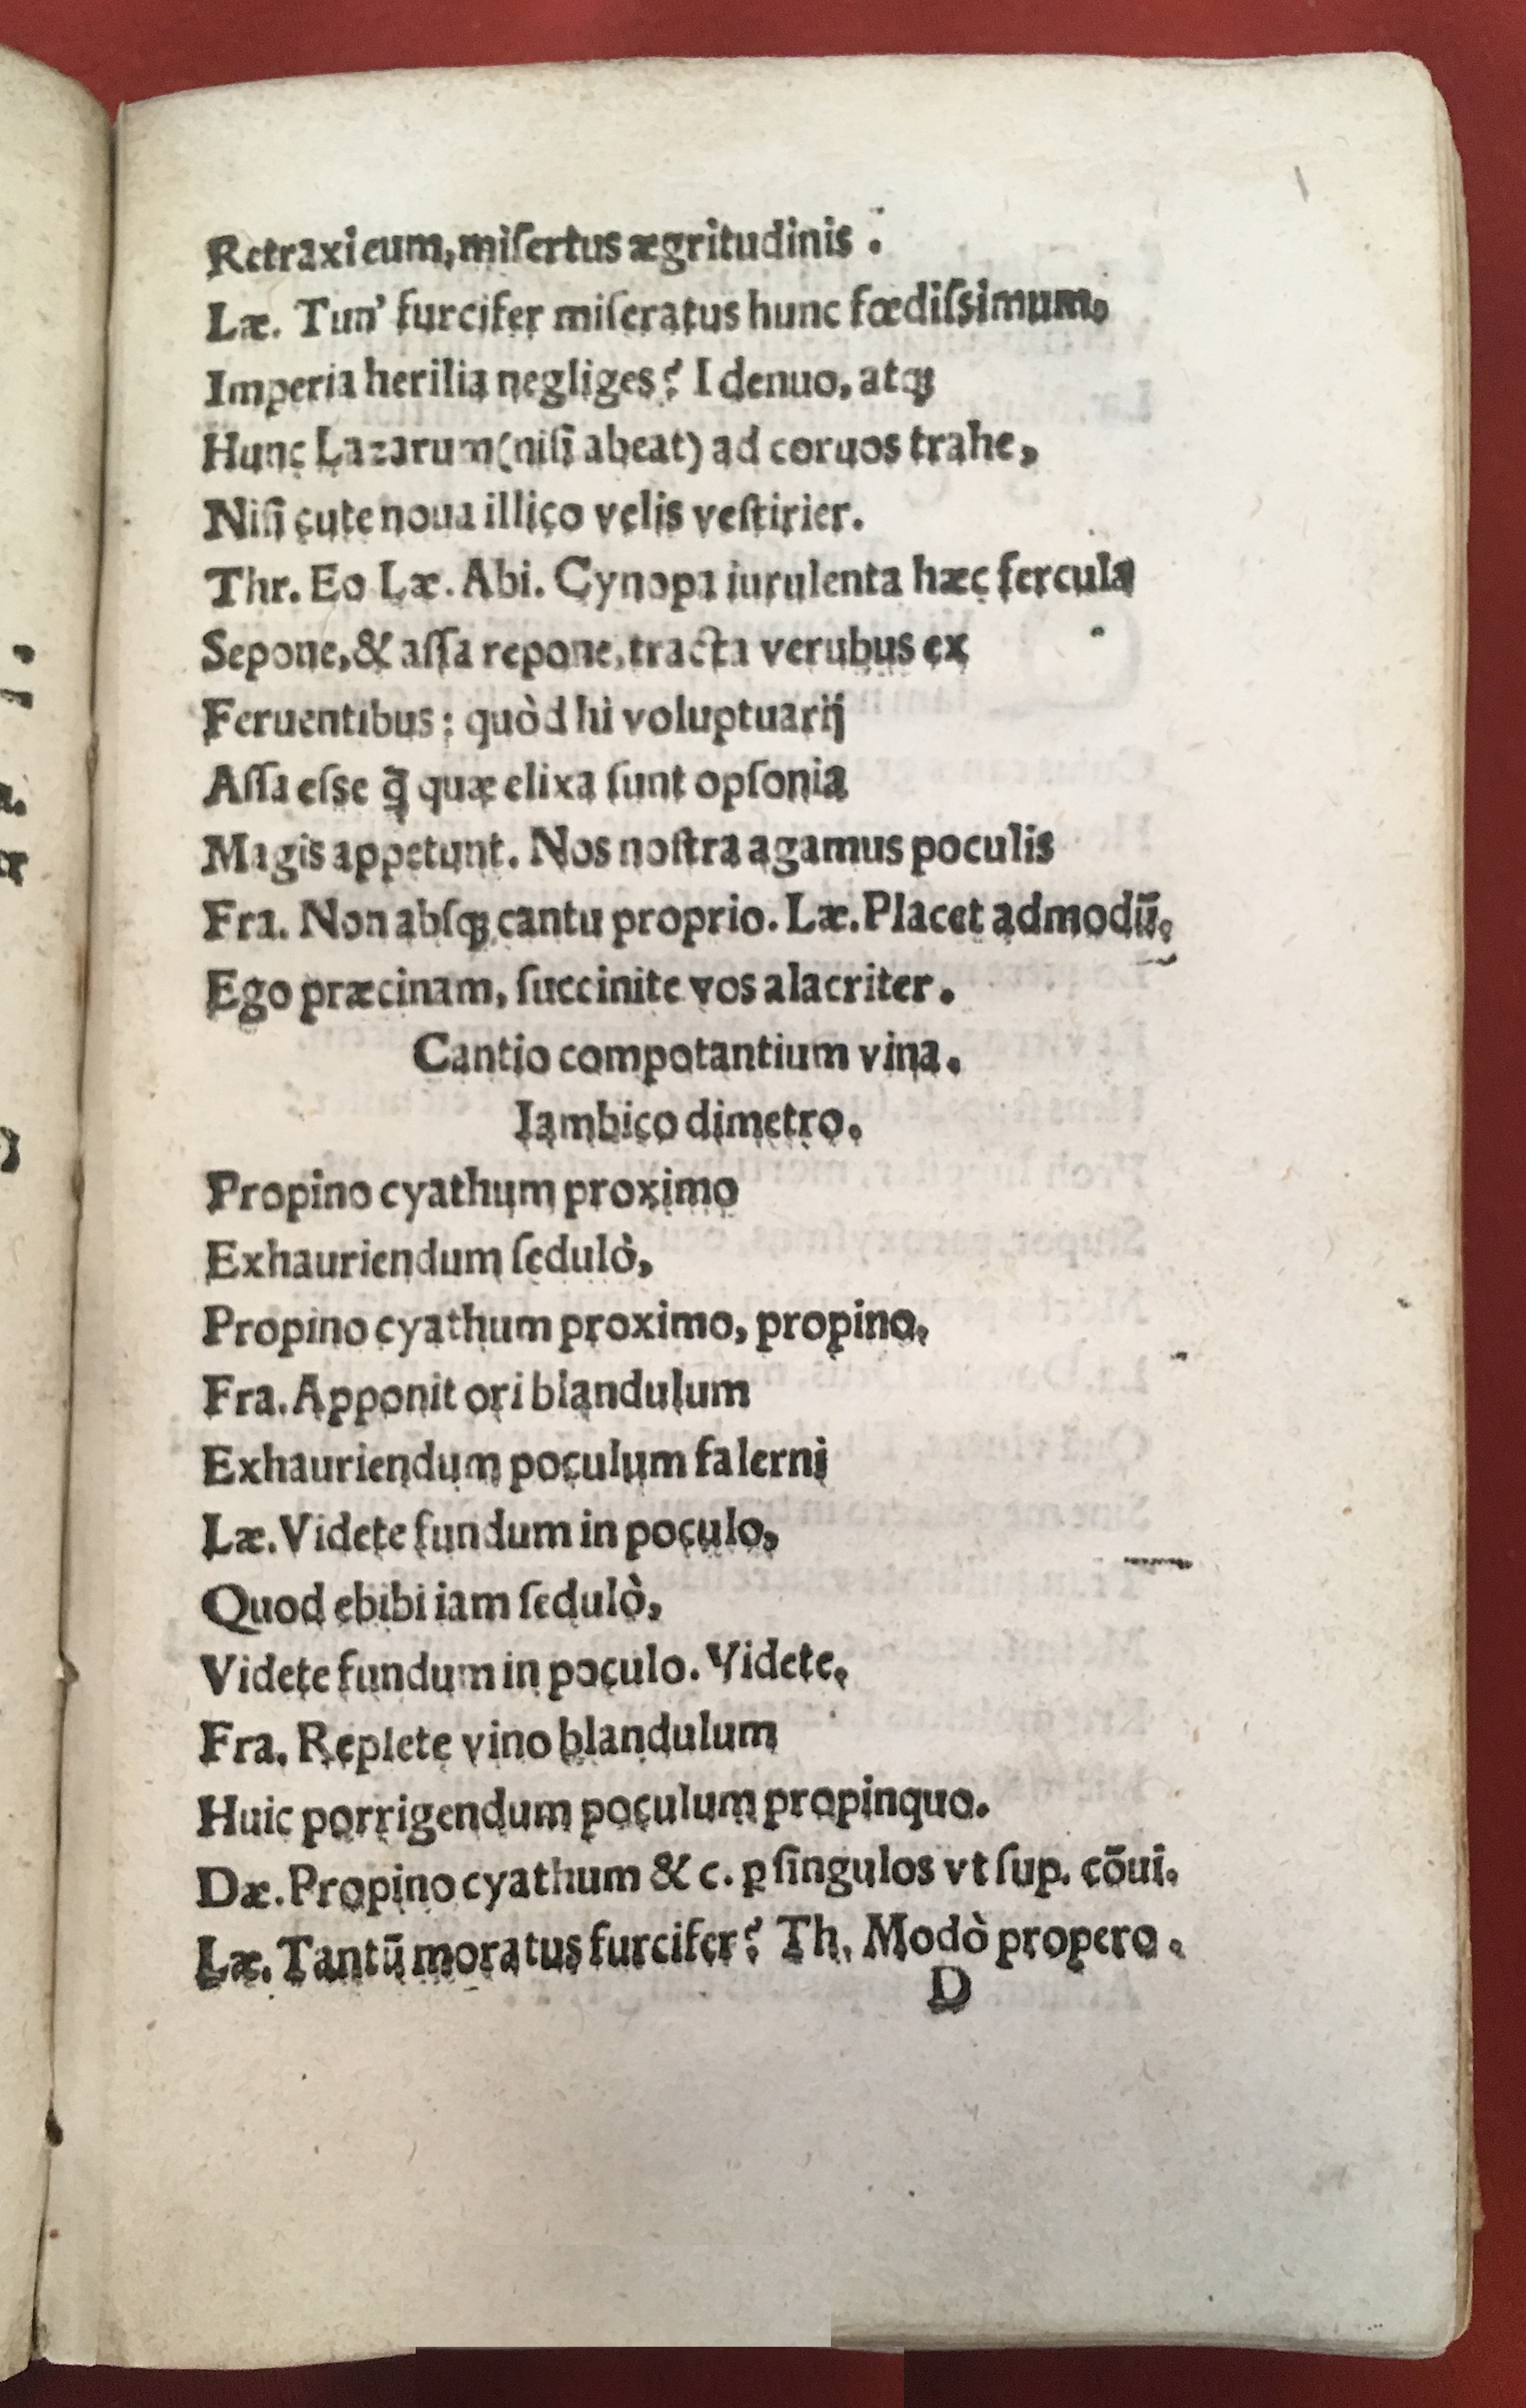 Retraxi eum, miſertus ægritudinis .
Læ. Tun' furcifer miſeratus hunc fœdiſsimum,
Imperia herilia negliges? I denuo, atꝗ
Hunc Lazarum (niſi abeat) ad coruos trahe,
Niſi cute noua illico velis veſtirier.
Thr. Eo Læ. Abi. Cynopa iurulenta hæc fercula
Sepone, & aſſa repone, tracta verubus ex
Feruentibus : quòd hi voluptuarij
Aſſa eſse q̄ quæ elixa ſunt opſonia
Magis appetunt. Nos noſtra agamus poculis
Fra. Non abſꝗ cantu proprio. Læ. Placet admodū.
Ego præcinam, ſuccinite vos alacriter.
Cantio compotantium vina.
Iambico dimetro.
Propino cyathum proximo
Exhauriendum ſedulò,
Propino cyathum proximo, propino,
Fra. Apponit ori blandulum
Exhauriendum poculum falerni
Læ. Videte fundum in poculo,
Quod ebibi iam ſedulò,
Videte fundum in poculo. Videte,
Fra. Replete vino blandulum
Huic porrigendum poculum propinquo.
Dæ. Propino cyathum & c. ꝑ ſingulos vt ſup. cōui.
Læ. Tantū moratus furcifer? Th. Modò propero .
D